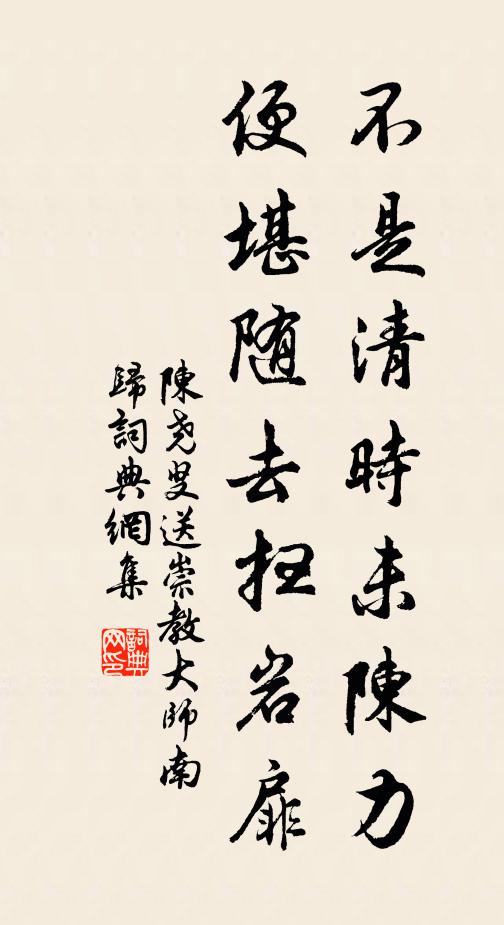 不是清時未陳力
便堪随去扫岩扉
陳尧叟送崇教大师南
歸詞典網集
詞典网印